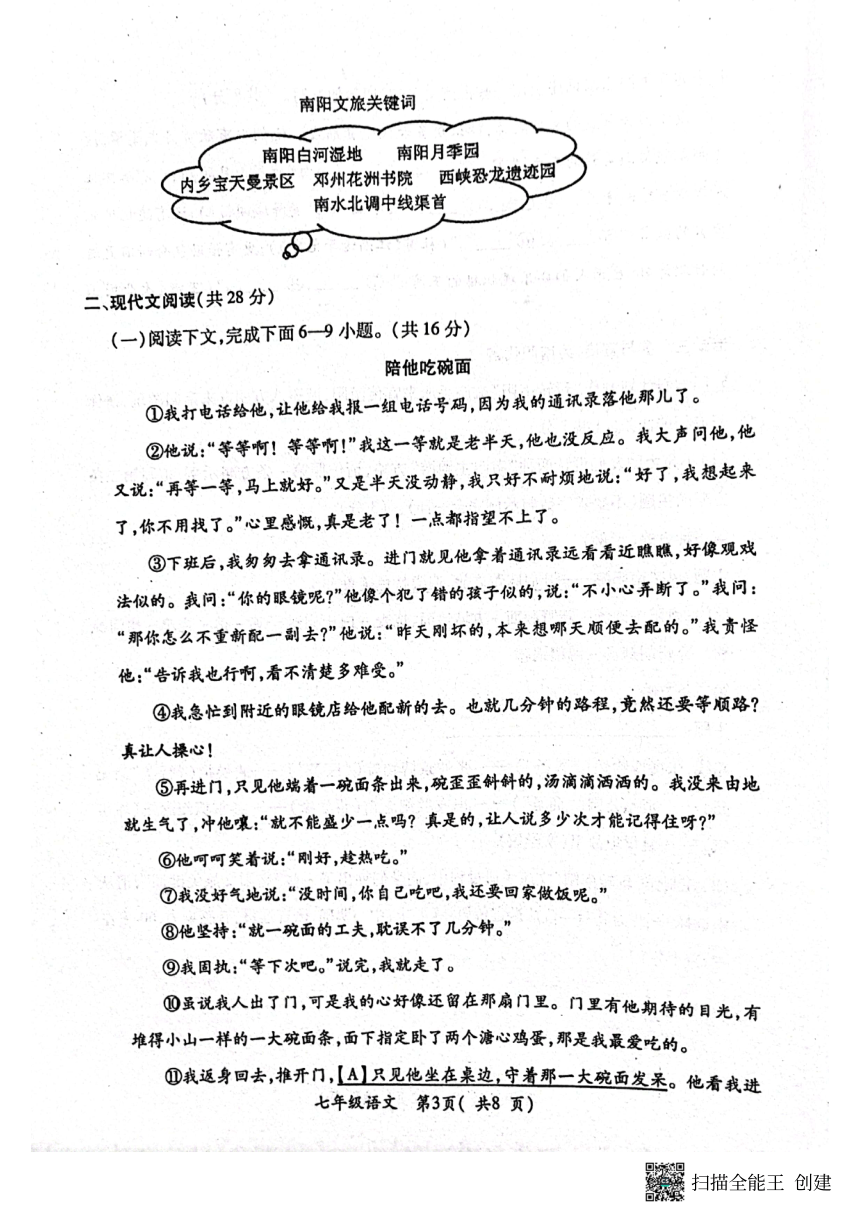 南阳文旅关键词
南阳白河湿地 南阳月季园
内乡宝天曼景区 邓州花洲书院 西峡恐龙遗迹园
南水北调中线渠首
二、现代文阅读(共28分)
(一)阅读下文,完成下面6—9小题。(共16分)
陪他吃碗面
①我打电话给他,让他给我报一组电话号码,因为我的通讯录落他那儿了。
②他说:“等等啊！等等啊!”我这一等就是老半天,他也没反应。我大声问他,他
又说:“再等一等,马上就好。”又是半天没动静,我只好不耐烦地说:“好了,我想起来
了,你不用找了。”心里感慨,真是老了！一点都指望不上了。
③下班后,我匆匆去拿通讯录。进门就见他拿着通讯录远看看近瞧瞧,好像观戏
法似的。我问:“你的眼镜呢?”他像个犯了错的孩子似的,说:“不小心弄断了。”我问:
“那你怎么不重新配一副去?”他说:“昨天刚坏的,本来想哪天顺便去配的。”我责怪
他:“告诉我也行啊,看不清楚多难受。”
④我急忙到附近的眼镜店给他配新的去。也就几分钟的路程,竟然还要等顺路?
真让人操心!
⑤再进门,只见他端着一碗面条出来,碗歪歪斜斜的,汤滴滴洒洒的。我没来由地
就生气了,冲他嚷:“就不能盛少一点吗？真是的,让人说多少次才能记得住呀?”
⑥他呵呵笑着说:“刚好,趁热吃。”
⑦我没好气地说:“没时间,你自己吃吧,我还要回家做饭呢。”
⑧他坚持:“就一碗面的工夫,耽误不了几分钟。”
⑨我固执:“等下次吧。”说完,我就走了。
⑩虽说我人出了门,可是我的心好像还留在那扇门里。门里有他期待的目光,有
堆得小山一样的一大碗面条,面下指定卧了两个溏心鸡蛋,那是我最爱吃的。
⑪我返身回去,推开门,【A】只见他坐在桌边,守着那一大碗面发呆。他看我进
七年级语文 第3页( 共8 页)
扫描全能王 创建